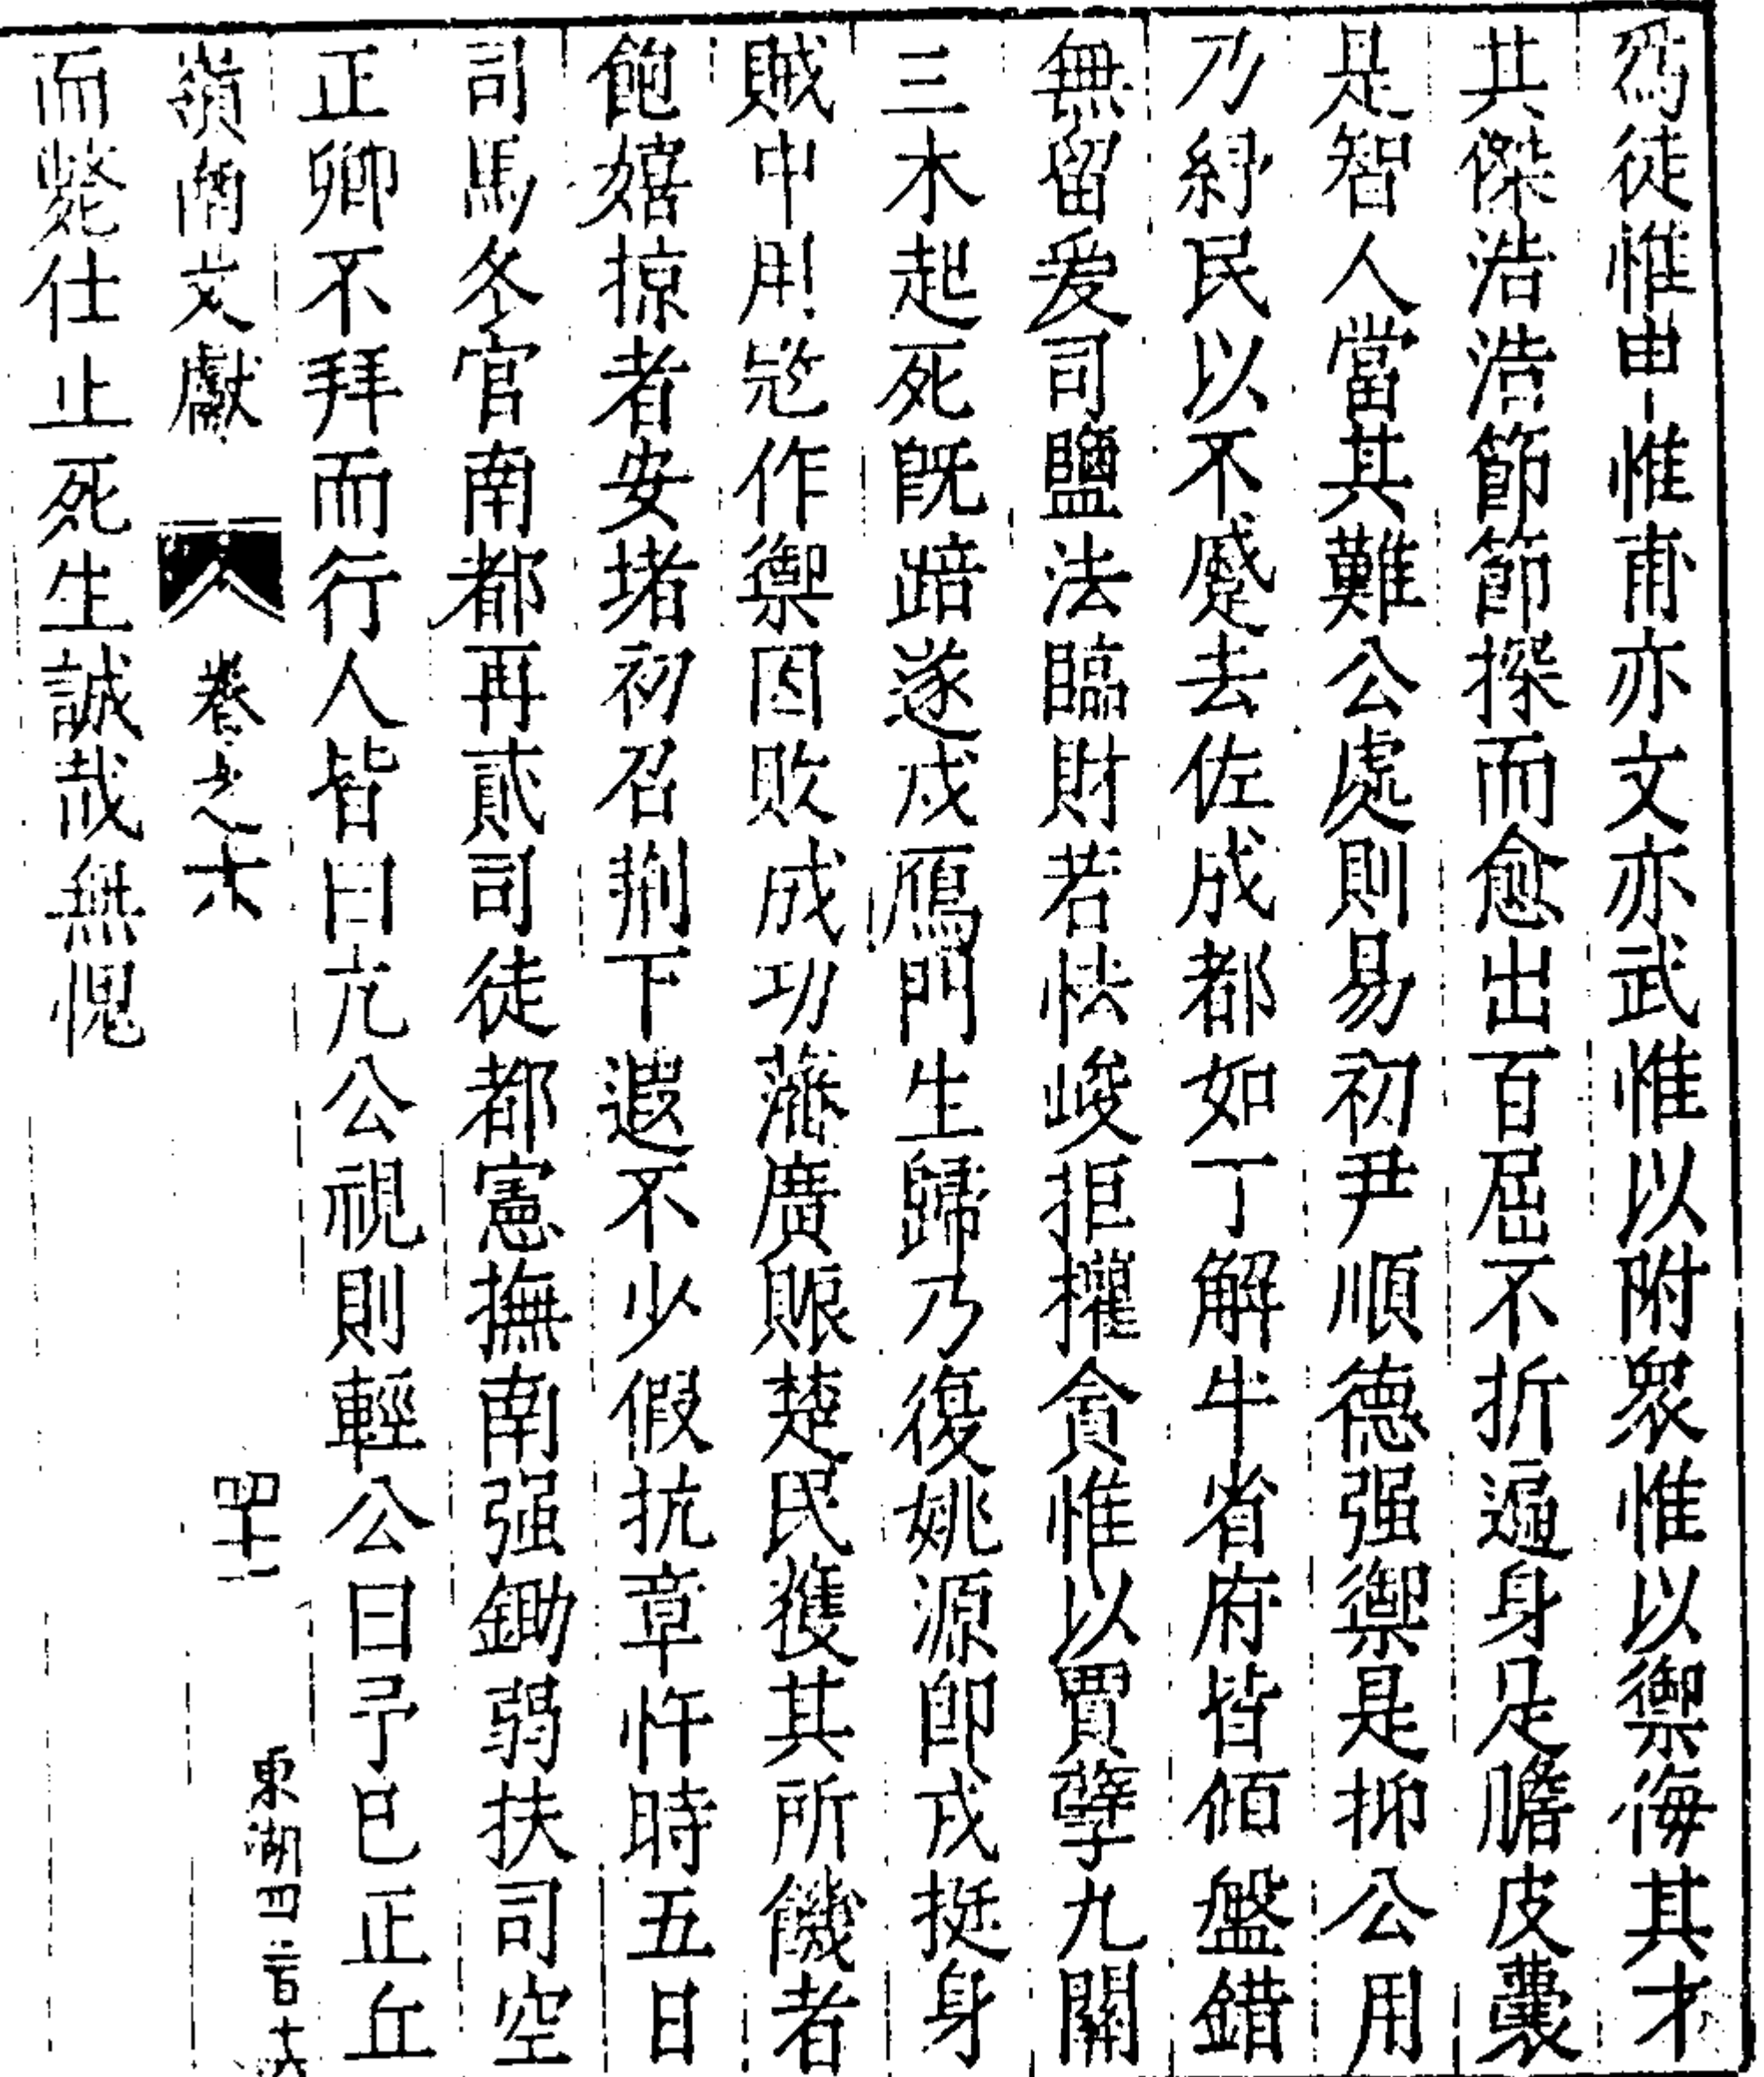 爲徒惟申惟甫亦文亦武惟以附衆惟以禦侮其才
其傑浩浩節節探而愈出百屈不折遍身是膽皮囊
是智人當其難公處則易初尹順德强禦是抑公用
乃紓民以不蹙去佐成都如丁解牛省府皆傾盤錯
無留爰司鹽法臨財若怯峻拒權貪惟以賈孽九關
三木起死旣踣遂戍鴈門生歸乃復姚源卽戎挺身
賊中用愆作禦因敗成功藩廣賑楚民獲其所饑者
飽嬉掠者安堵初召荆下遐不少假抗章忤時五日
司馬冬官南都再貳司徒都憲撫南强鋤弱扶司空
正卿不拜而行人皆曰亢公視則輕公曰予已正丘
嶺南文獻 卷之六 四十一 東湖四百十六
而斃仕止死生誠哉無愧